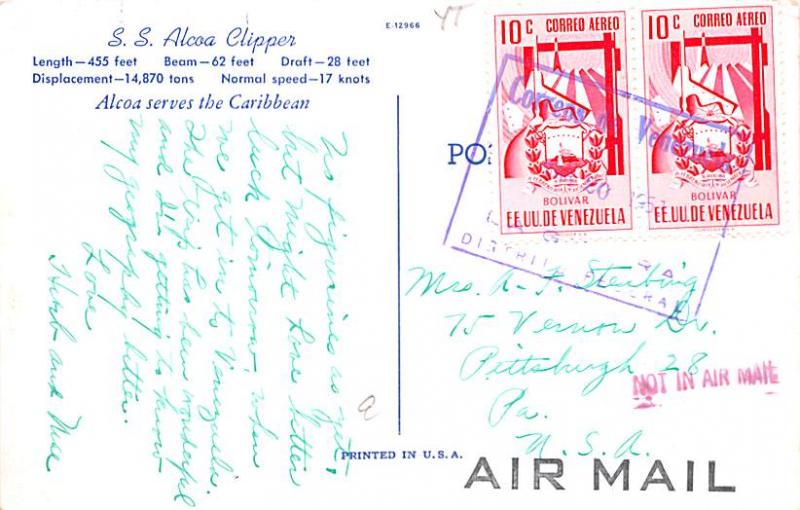 E-12966
S. S. Alcoa Clipper
Length—455 feet Beam—62 feet Draft—28 feet
Displacement—14,870 tons Normal speed—17 knots
Alcoa serves the Caribbean
No figurines as yet,
but might have better
luck tomorrow, when
we get in to Venezuela.
The trip has been wonderful
and I'm getting to know
my geography better.
Love
Herb and
a
PRINTED IN U.S.A.
10 C CORREO AEREO
BOLIVAR
EE.UU. DE VENEZUELA
10 C CORREO AEREO
BOLIVAR
EE.UU. DE VENEZUELA
Correos de Venezuela
20
DISTRITO FEDERAL
PO
Mrs. A. F. Sterling
75 Vernon Dr.
Pittsburgh 28
Pa.
U. S. A.
NOT IN AIR MAIL
AIR MAIL